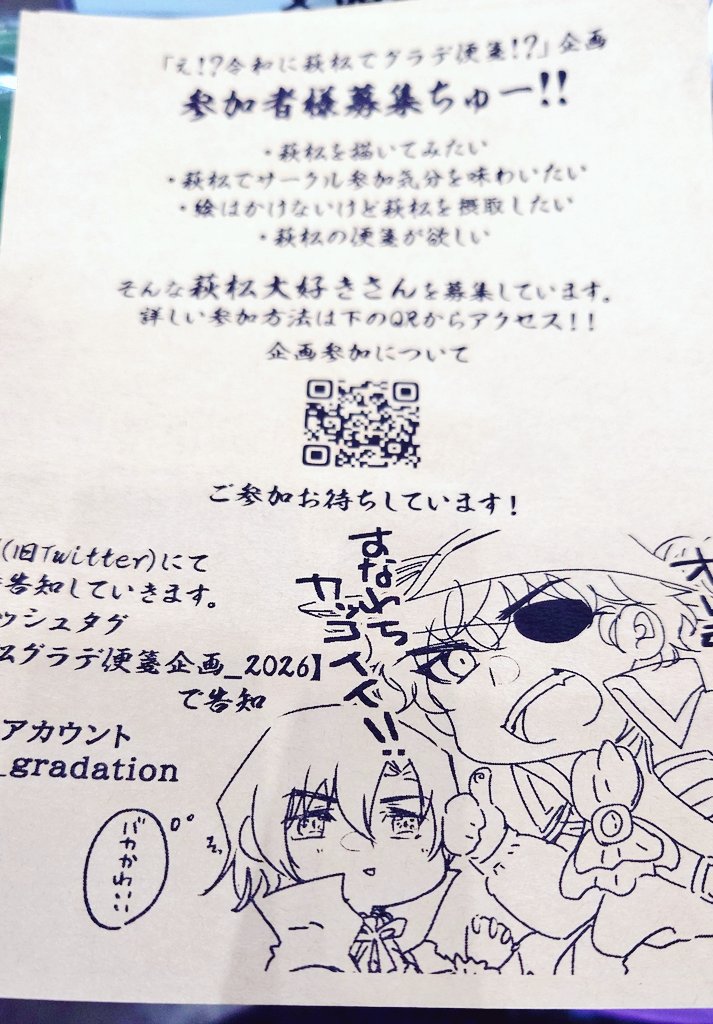 「え!?令和に萩松でグラデ便箋!?」企画
参加者様募集ちゅー!!
・萩松を描いてみたい
・萩松でサークル参加気分を味わいたい
・絵はかけないけど萩松を摂取したい
・萩松の便箋が欲しい
そんな萩松大好きさんを募集しています。
詳しい参加方法は下のQRからアクセス!!
企画参加について
ご参加お待ちしています!
(旧Twitter)にて
告知していきます。
ッシュタグ
グラデ便箋企画_2026】
で告知
アカウント
_gradation
すなわち
カッコイイ!!
バカかわいい